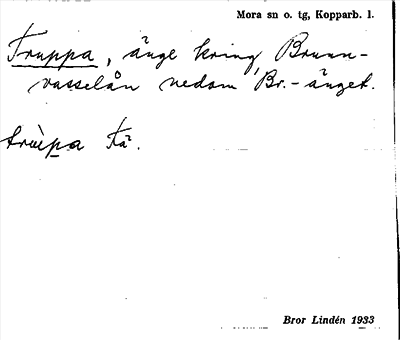 Mora sn o. tg, Kopparb. l.
Truppa, änge kring Brunn-
vasselån nedom Br.-änget.
trùpa Fä.
Bror Lindén 1933